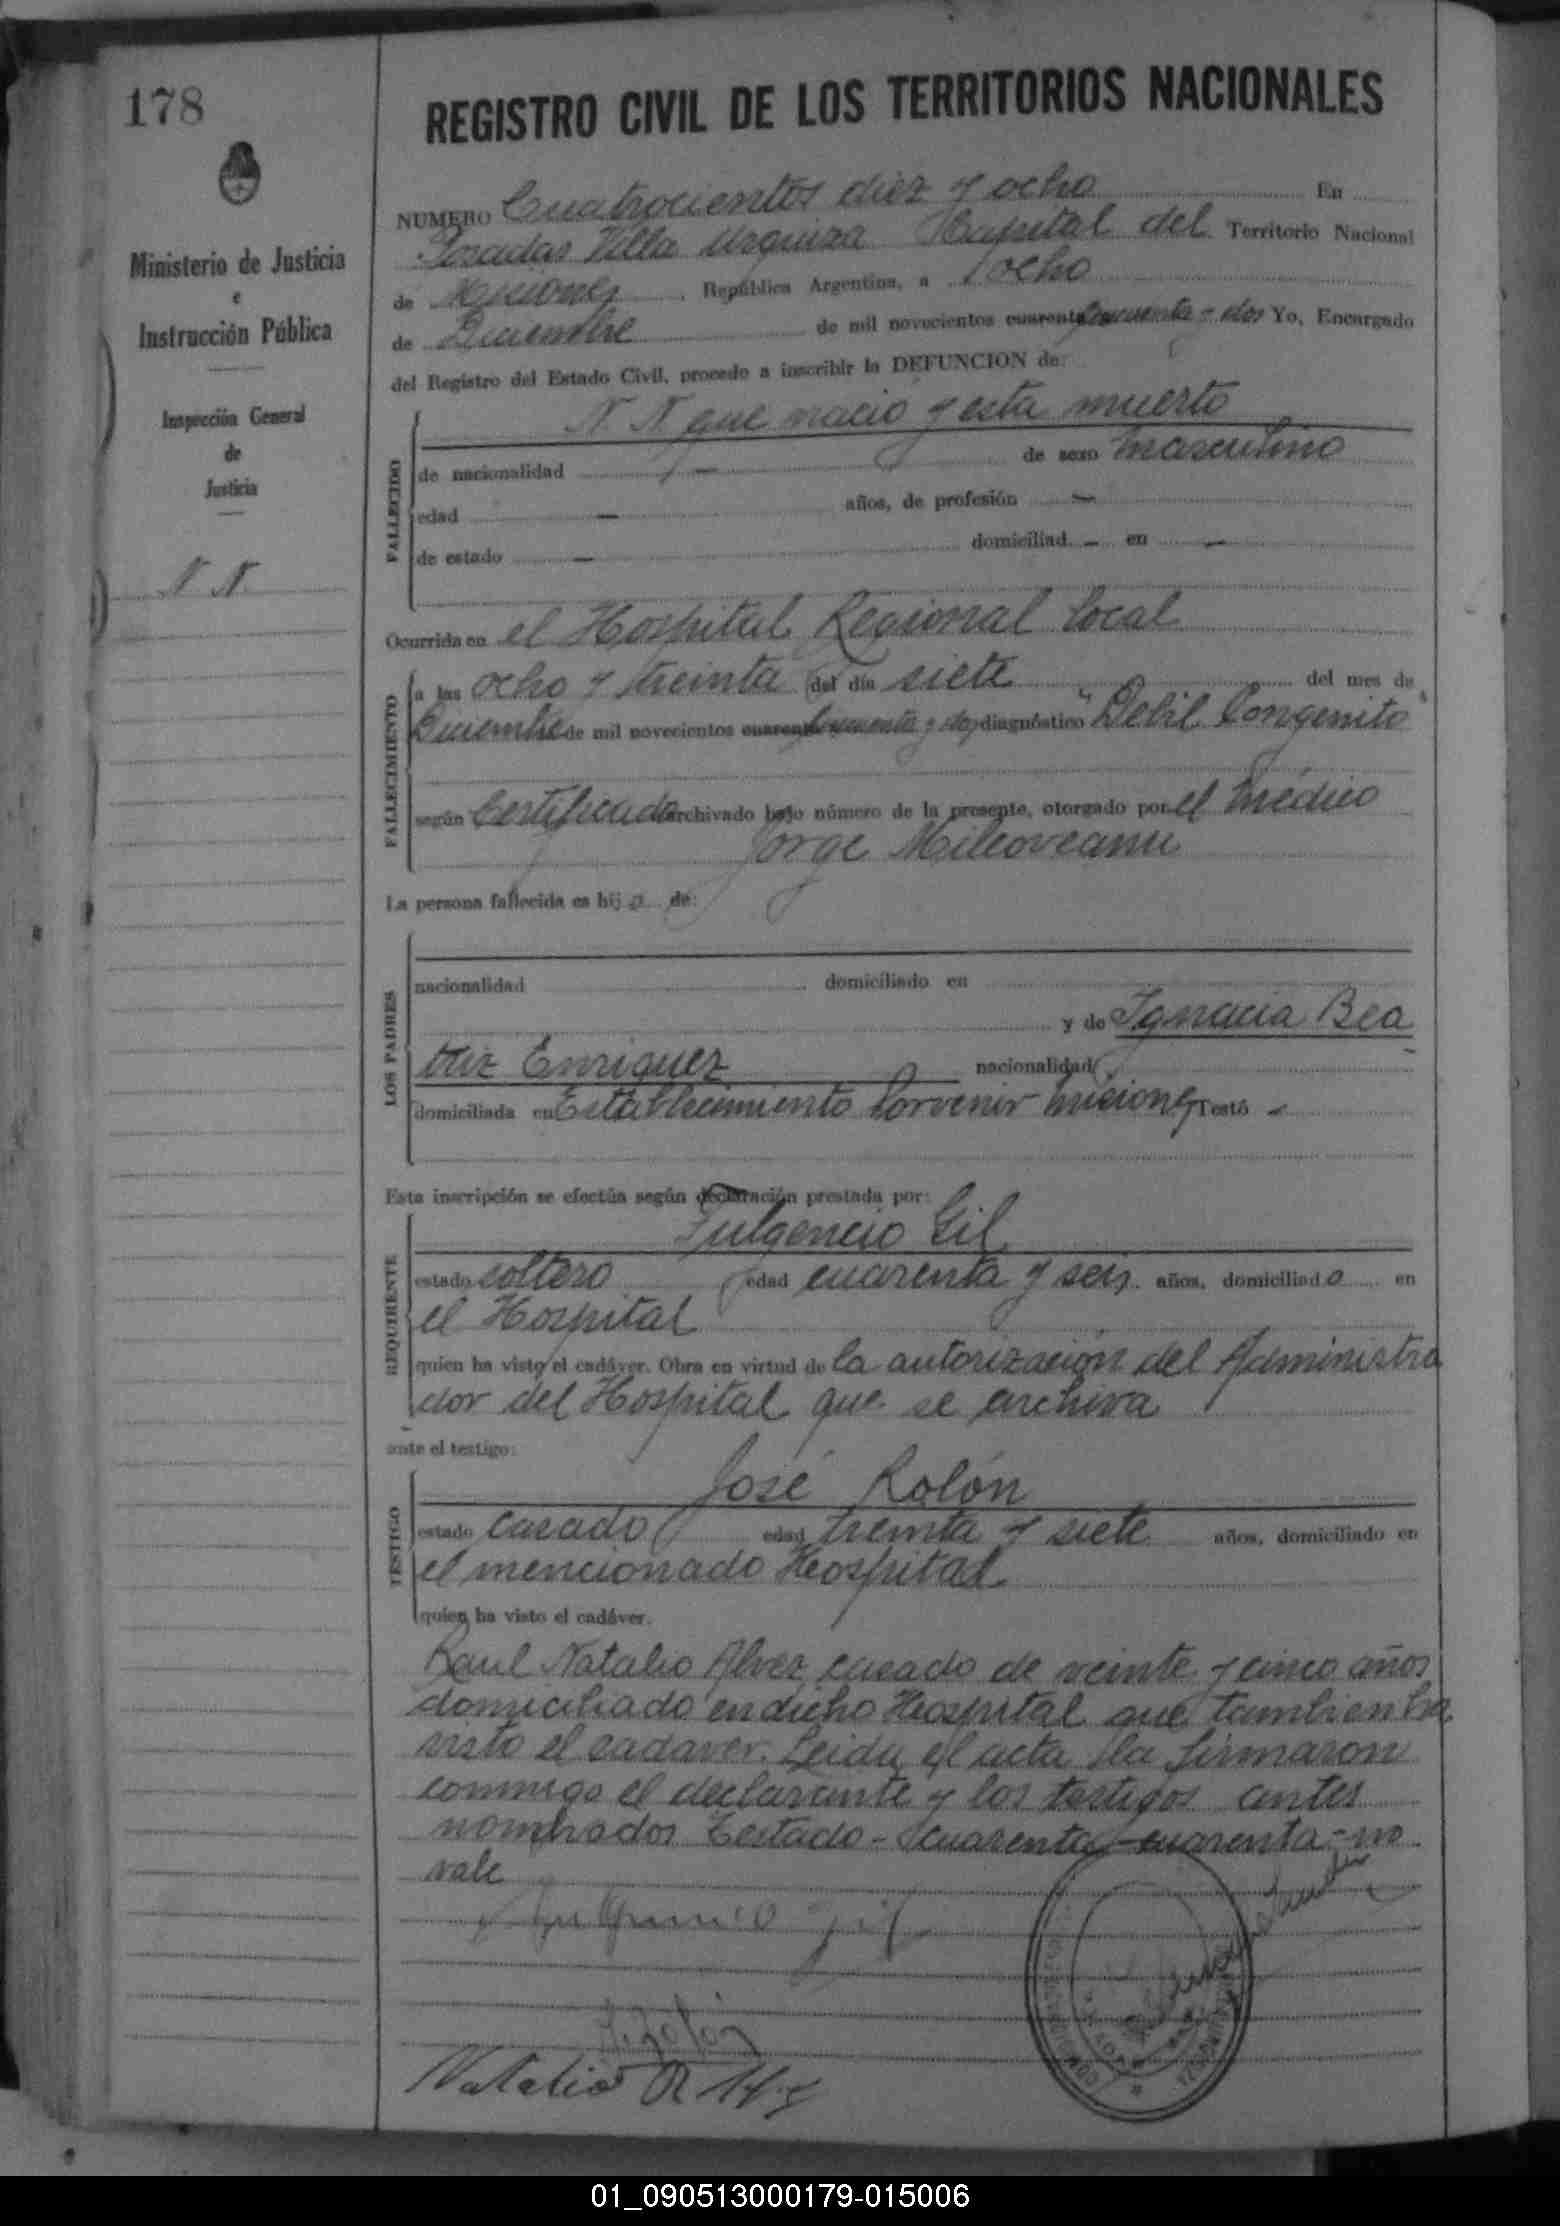 178
REGISTRO CIVIL DE LOS TERRITORIOS NACIONALES
Ministerio de Justicia
e
Instrucción Pública
Inspección General
de
Justicia
N. N.
NUMERO Cuatrocientos diez y ocho En
Posadas Villa Urquiza Capital del Territorio Nacional
de Misiones, República Argentina, a ocho
de Diciembre de mil novecientos cuarenta cincuenta y dos Yo, Encargado
del Registro del Estado Civil, procedo a inscribir la DEFUNCION de:
FALLECIDO
N. N. que nació y esta muerto
de nacionalidad — de sexo masculino
edad — años, de profesión —
de estado — domiciliad — en —
Ocurrida en el Hospital Regional local
FALLECIMIENTO
a las ocho y treinta del día siete del mes de
Diciembre de mil novecientos cuarenta cincuenta y dos diagnóstico "Debil Congenito"
según Certificado archivado bajo número de la presente, otorgado por el médico
Jorge Milcoveanu
La persona fallecida es hijo de:
LOS PADRES
nacionalidad domiciliado en
y de Ignacia Bea
triz Enriquez nacionalidad
domiciliada en Establecimiento Porvenir Misiones Testó -
Esta inscripción se efectúa según declaración prestada por:
REQUIRENTE
Fulgencio Gil
estado soltero edad cuarenta y seis años, domiciliado en
el Hospital
quien ha visto el cadáver. Obra en virtud de la autorización del Administra
dor del Hospital que se archiva
ante el testigo:
TESTIGO
José Rolón
estado casado edad treinta y siete años, domiciliado en
el mencionado Hospital
quien ha visto el cadáver.
Raul Natalio Alvez, casado de veinte y cinco años
domiciliado en dicho Hospital que tambien ha
visto el cadaver. Leida el acta la firmaron
conmigo el declarante y los testigos antes
nombrados Testado - cuarenta - cuarenta - no
vale
Fulgencio Gil
J. Rolón
Natalio R.
01_090513000179-015006